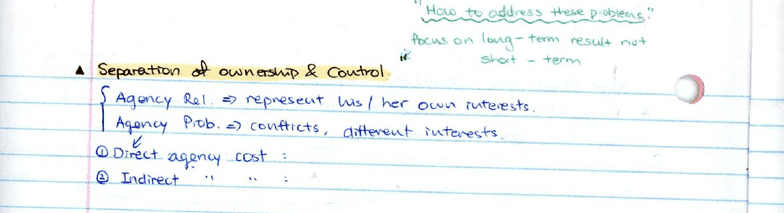 "How to address these problems."
focus on long-term result not
short-term
▲ Separation of ownership & Control
Agency Rel. => represent his/her own interests.
Agency Prob. => conflicts, different interests.
① Direct agency cost :
② Indirect " " :